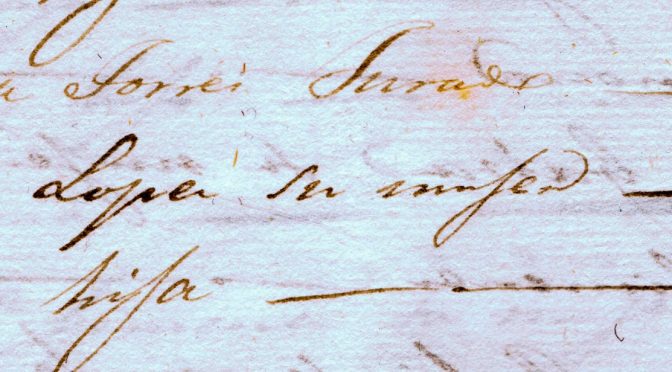 a Torres Jurado
Lopes su muger
hija